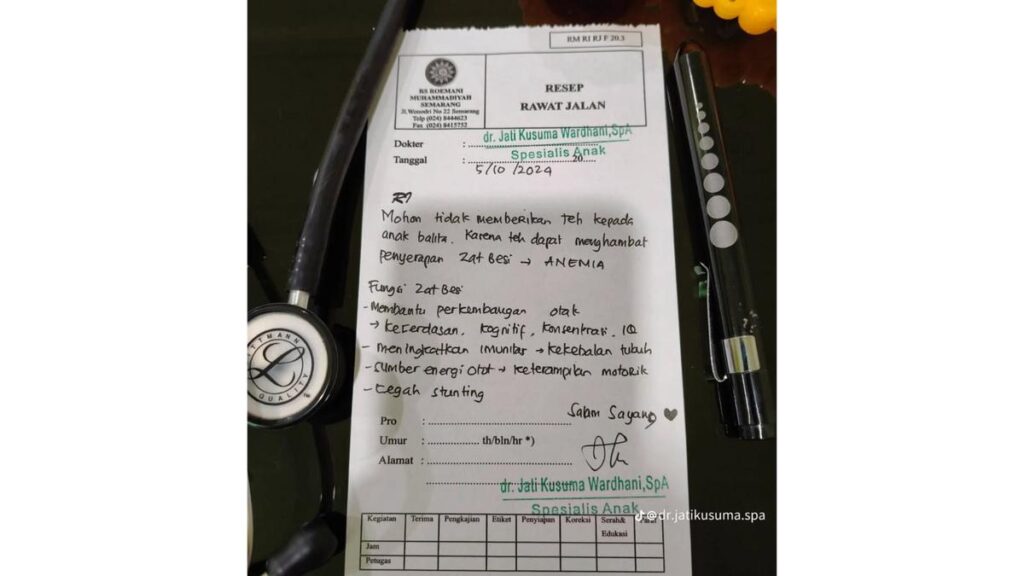 RM RI RJ F 20.3
RS ROEMANI
MUHAMMADIYAH
SEMARANG
Jl. Wonodri No 22 Semarang
Telp (024) 8444623
Fax (024) 8415752
RESEP
RAWAT JALAN
Dokter : dr. Jati Kusuma Wardhani,SpA
Spesialis Anak
Tanggal : 20
5/10/2024
R/
Mohon tidak memberikan teh kepada
anak balita. Karena teh dapat menghambat
penyerapan Zat Besi → ANEMIA
Fungsi Zat Besi
- Membantu perkembangan otak
→ kecerdasan, kognitif, konsentrasi, IQ
- meningkatkan imunitas → kekebalan tubuh
- sumber energi otot → keterampilan motorik
- cegah stunting
Salam Sayang
Pro :
Umur : th/bln/hr *)
Alamat :
dr. Jati Kusuma Wardhani,SpA
Spesialis Anak
dr.jatikusuma.spa
Kegiatan Terima Pengkajian Etiket Penyiapan Koreksi Serah& Paraf
Edukasi
Jam
Petugas
LITTMANN
QUALITY